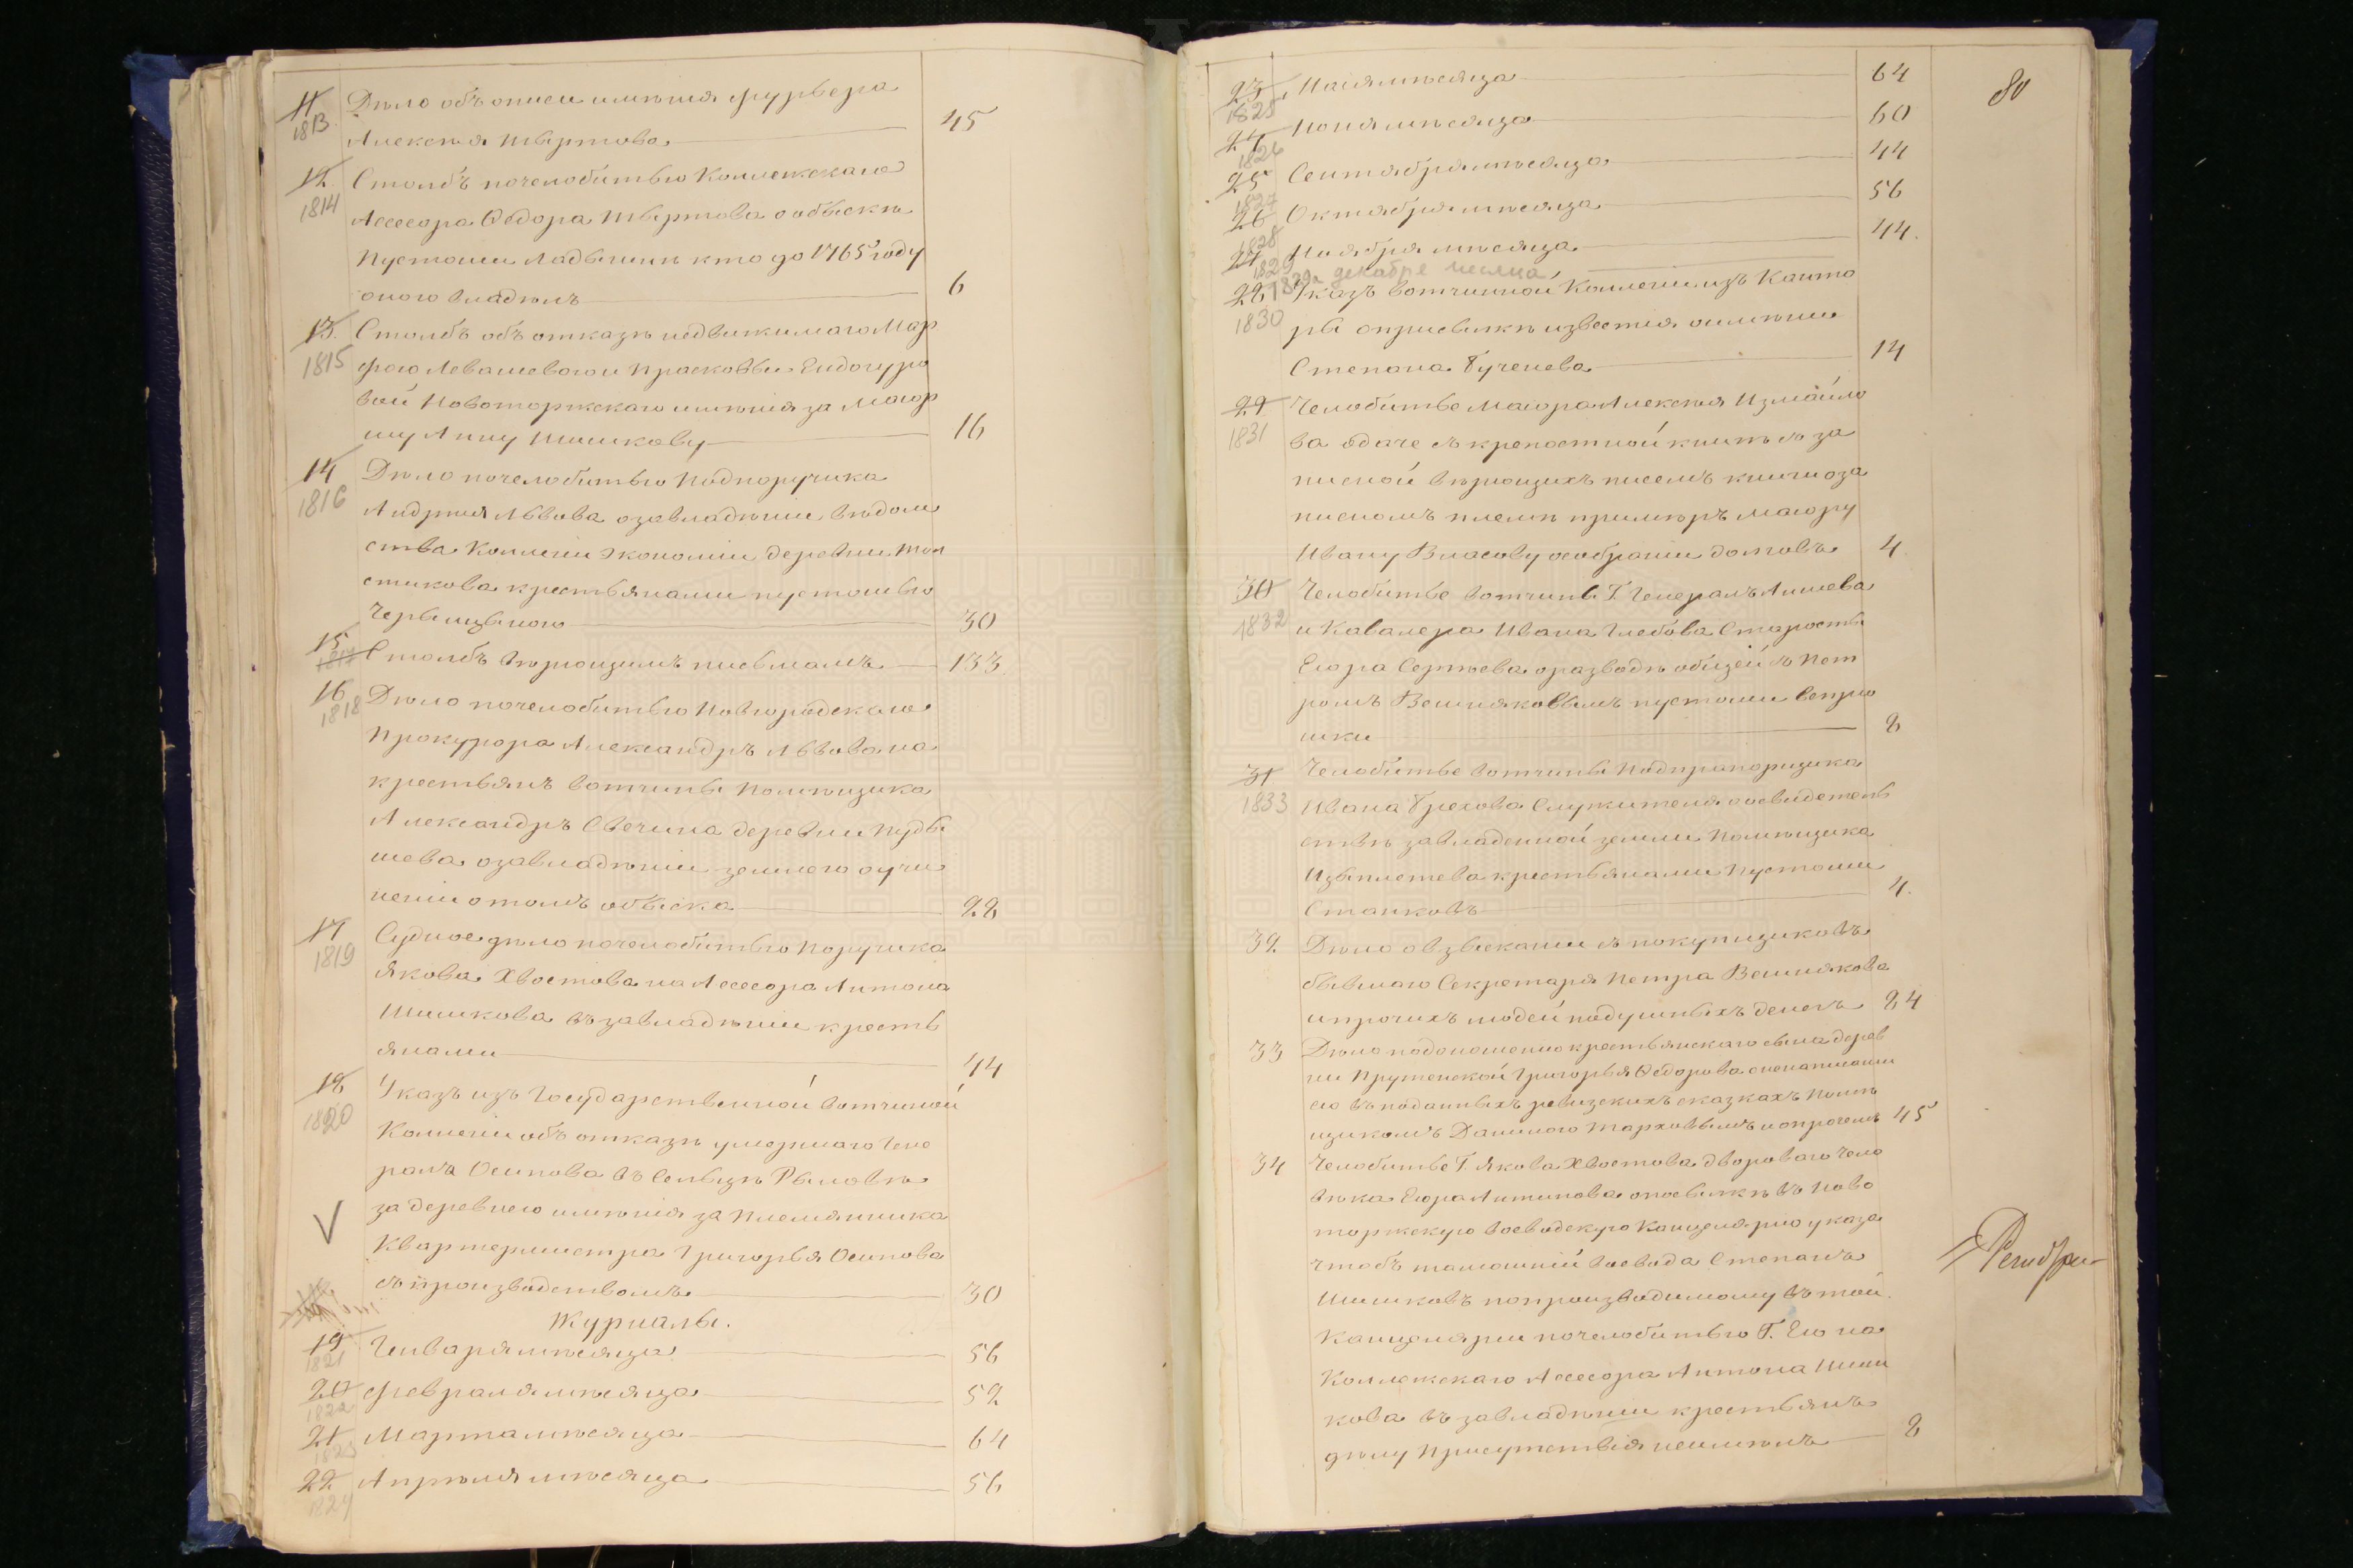 11 Дѣло объ описи имѣнія фурьера
1813 Алексѣя Швертова 45
12 Столбъ почелобитью Коллежскаго
1814 Ассесора Ѳедора Швертова о обыскѣ
Пустоши Ладыгинѣ кто до 1765 году
оною владѣлъ 6
13 Столбъ объ отказѣ недвижимаго Мар
1815 фою Левашевою и Прасковьи Ендогуро
вой Новоторжскаго имѣнія за Маіор
шу Анну Шишкову 16
14 Дѣло почелобитью Подпоручика
1816 Андрѣя Львова озавладѣніи вѣдом
ства Коллегіи Экономіи деревни Тол
стикова крестьянами пустошью
30
15 Столбъ вѣрющимъ письмамъ 133
16 Дѣло почелобитью Новгородскаго
1818 Прокурора Александръ Львова на
крестьянъ вотчины Помѣщика
Александръ Свечина деревни Пуды
шева озавладѣніи землею оучи
неніи отомъ обыска 28
17 Судное дѣло почелобитью Поручика
1819 Якова Хвостова на Ассесора Антона
Шишкова въ завладѣніи кресть
янами 44
18 Указъ изъ Государственной вотчиной
1820 Коллегіи объ отказѣ умершаго Гене
ралъ Осипова въ Сельцѣ Рыловѣ
за деревнею имѣнія за Племянника
Квартермистра Григорья Осипова
съ производствомъ 30
Журналы.
19 Генваря мѣсяца 56
1821
20 Февраля мѣсяца 52
1822
21 Марта мѣсяца 64
1823
22 Апрѣля мѣсяца 56
1824
80
23 Маія мѣсяца 64
1825
24 Іюня мѣсяца 60
1826
25 Сентября мѣсяца 44
1827
26 Октября мѣсяца 56
1828
27 Ноября мѣсяца 44.
1829 декабре месяца
28 Указъ вотчинной Коллегіи изъ Канто
1830 ры оприсылкѣ известія оимѣніи
Степана Бученева 14
29 Челобитье Маіора Алексѣя Измайло
1831 ва одаче съ крепостной книгѣ съ за
писной вѣрющихъ писемъ книги оза
писномъ племъ примѣръ Маіору
Ивану Власову особраніи долговъ 4.
30 Челобитье вотчины Г. Генералъ Аншева
1832 и Кавалера Ивана Глебова Старосты
Егора Сергѣева оразводѣ общей съ Пет
ромъ Вешняковымъ пустоши Вепрю
шки 8
31 Челобитье вотчины Подпрапорщика
1833 Ивана Грехова Служителя оосвидетель
ствѣ завладенной земли Помѣщика
Изъплетева крестьянами Пустоши
Станковъ 4.
32 Дѣло овзысканіи съ покупщиковъ
бывшаго Секретаря Петра Вешнякова
ипрочихъ людей подушныхъ денегъ 24
33 Дѣло подоношенію крестьянскаго сына дерев
ни Прутенской Григорья Ѳедорова онепаписаніи
его въ поданныхъ ревизскихъ сказкахъ Помѣ
щикомъ Данилою Тарховымъ и опрочемъ 45
34 Челобитье Г. Якова Хвостова дворового чело
вѣка Егора Антипова опосылкѣ въ Ново
торжскую воеводскую Канцелярію указа
чтобъ тамошній воевода Степанъ
Шишковъ попроизводимому въ той
Канцеляріи почелобитью Г. Его на
Коллежскаго Ассесора Антона Шиш
кова въ завладѣніи крестьянъ
дѣлу Присутствія неимѣлъ 8